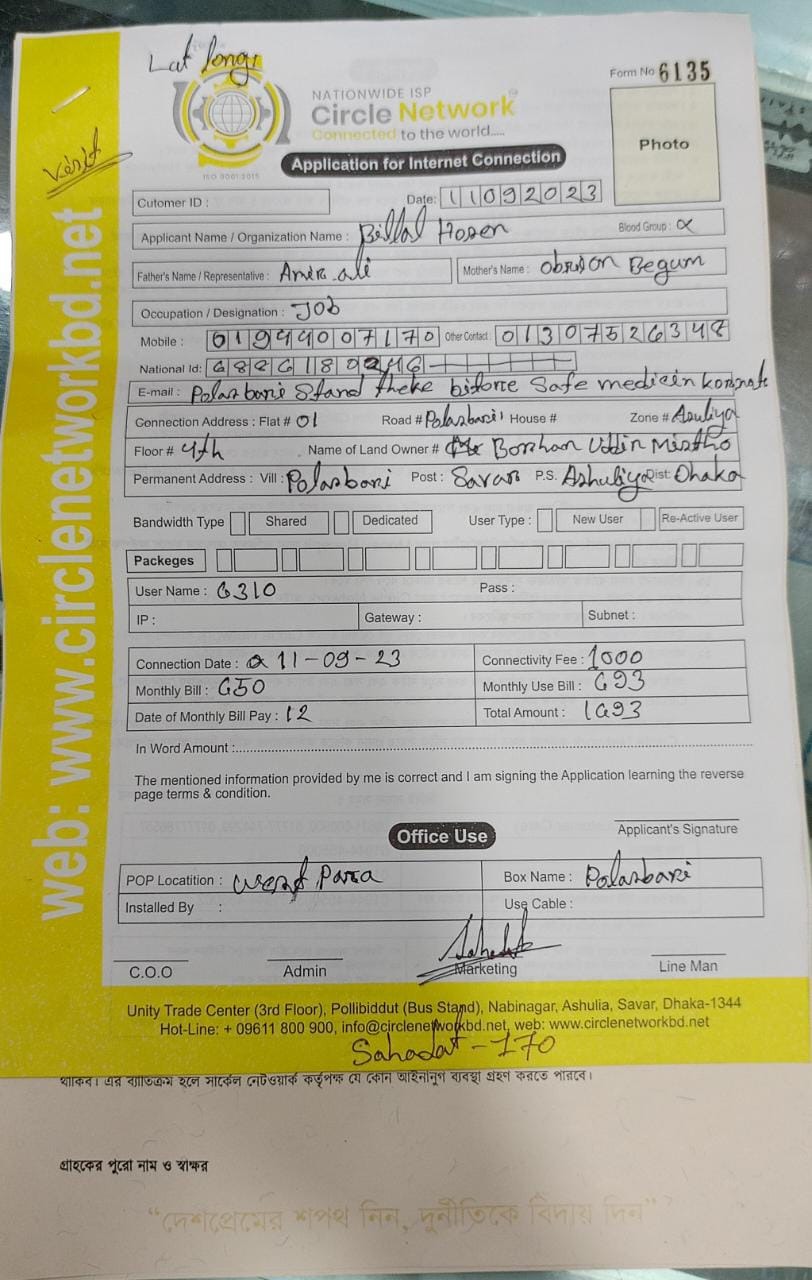 Lat long
Form No 6135
NATIONWIDE ISP
Circle Network
Connected to the world.....
ISO 9001:2015
Photo
Verif
Application for Internet Connection
Cutomer ID : Date: 11092023
Applicant Name / Organization Name : Billal Hosen Blood Group :
Father's Name / Representative : Amir ali Mother's Name : Begum
Occupation / Designation : Job
Mobile : 01944007170 Other Contact : 01307526348
National Id:
E-mail : Polasbari Stand theke bifore Safe medicin
Connection Address : Flat # 01 Road # Polasbari House # Zone # Asuliya
Floor # 4th Name of Land Owner # Borhan Uddin
Permanent Address : Vill : Polasbari Post : Savar P.S. Ashuliya Dist: Dhaka
Bandwidth Type Shared Dedicated User Type : New User Re-Active User
Packeges
User Name : 6310 Pass :
IP : Gateway : Subnet :
Connection Date : 11-09-23 Connectivity Fee : 1000
Monthly Bill : 650 Monthly Use Bill : 693
Date of Monthly Bill Pay : 12 Total Amount : 1693
In Word Amount :
The mentioned information provided by me is correct and I am signing the Application learning the reverse
page terms & condition.
Applicant's Signature
Office Use
POP Locatition : West Para Box Name : Polasbari
Installed By : Use Cable :
C.O.O Admin Marketing Line Man
Unity Trade Center (3rd Floor), Pollibiddut (Bus Stand), Nabinagar, Ashulia, Savar, Dhaka-1344
Hot-Line: + 09611 800 900, info@circlenetworkbd.net, web: www.circlenetworkbd.net
Sahadat-170
web: www.circlenetworkbd.net
থাকিব। এর ব্যতিক্রম হলে সার্কেল নেটওয়ার্ক কর্তৃপক্ষ যে কোন আইনানুগ ব্যবস্থা গ্রহণ করতে পারবে।
গ্রাহকের পুরো নাম ও স্বাক্ষর
“দেশপ্রেমের শপথ নিন, দুর্নীতিকে বিদায় দিন”